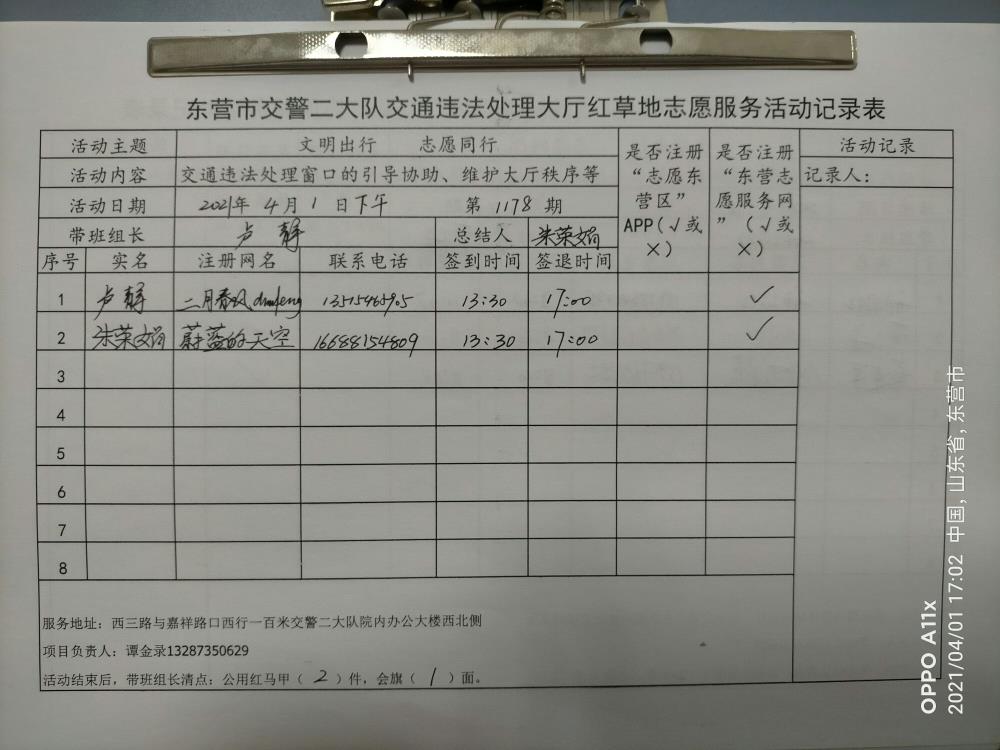 东营市交警二大队交通违法处理大厅红草地志愿服务活动记录表
活动主题 文明出行 志愿同行 是否注册“志愿东营区”APP(√或×) 是否注册“东营志愿服务网”(√或×) 活动记录
活动内容 交通违法处理窗口的引导协助、维护大厅秩序等 记录人:
活动日期 2021年 4月 1日下午 第 1178 期
带班组长 卢静 总结人 朱荣娟
序号 实名 注册网名 联系电话 签到时间 签退时间
1 卢静 二月春风 13515465905 13:30 17:00 ✓
2 朱荣娟 蔚蓝的天空 16688154809 13:30 17:00 ✓
3
4
5
6
7
8
服务地址：西三路与嘉祥路口西行一百米交警二大队院内办公大楼西北侧
项目负责人：谭金录13287350629
活动结束后，带班组长清点：公用红马甲（ 2 ）件，会旗（ 1 ）面。
OPPO A11x
2021/04/01 17:02 中国, 山东省, 东营市